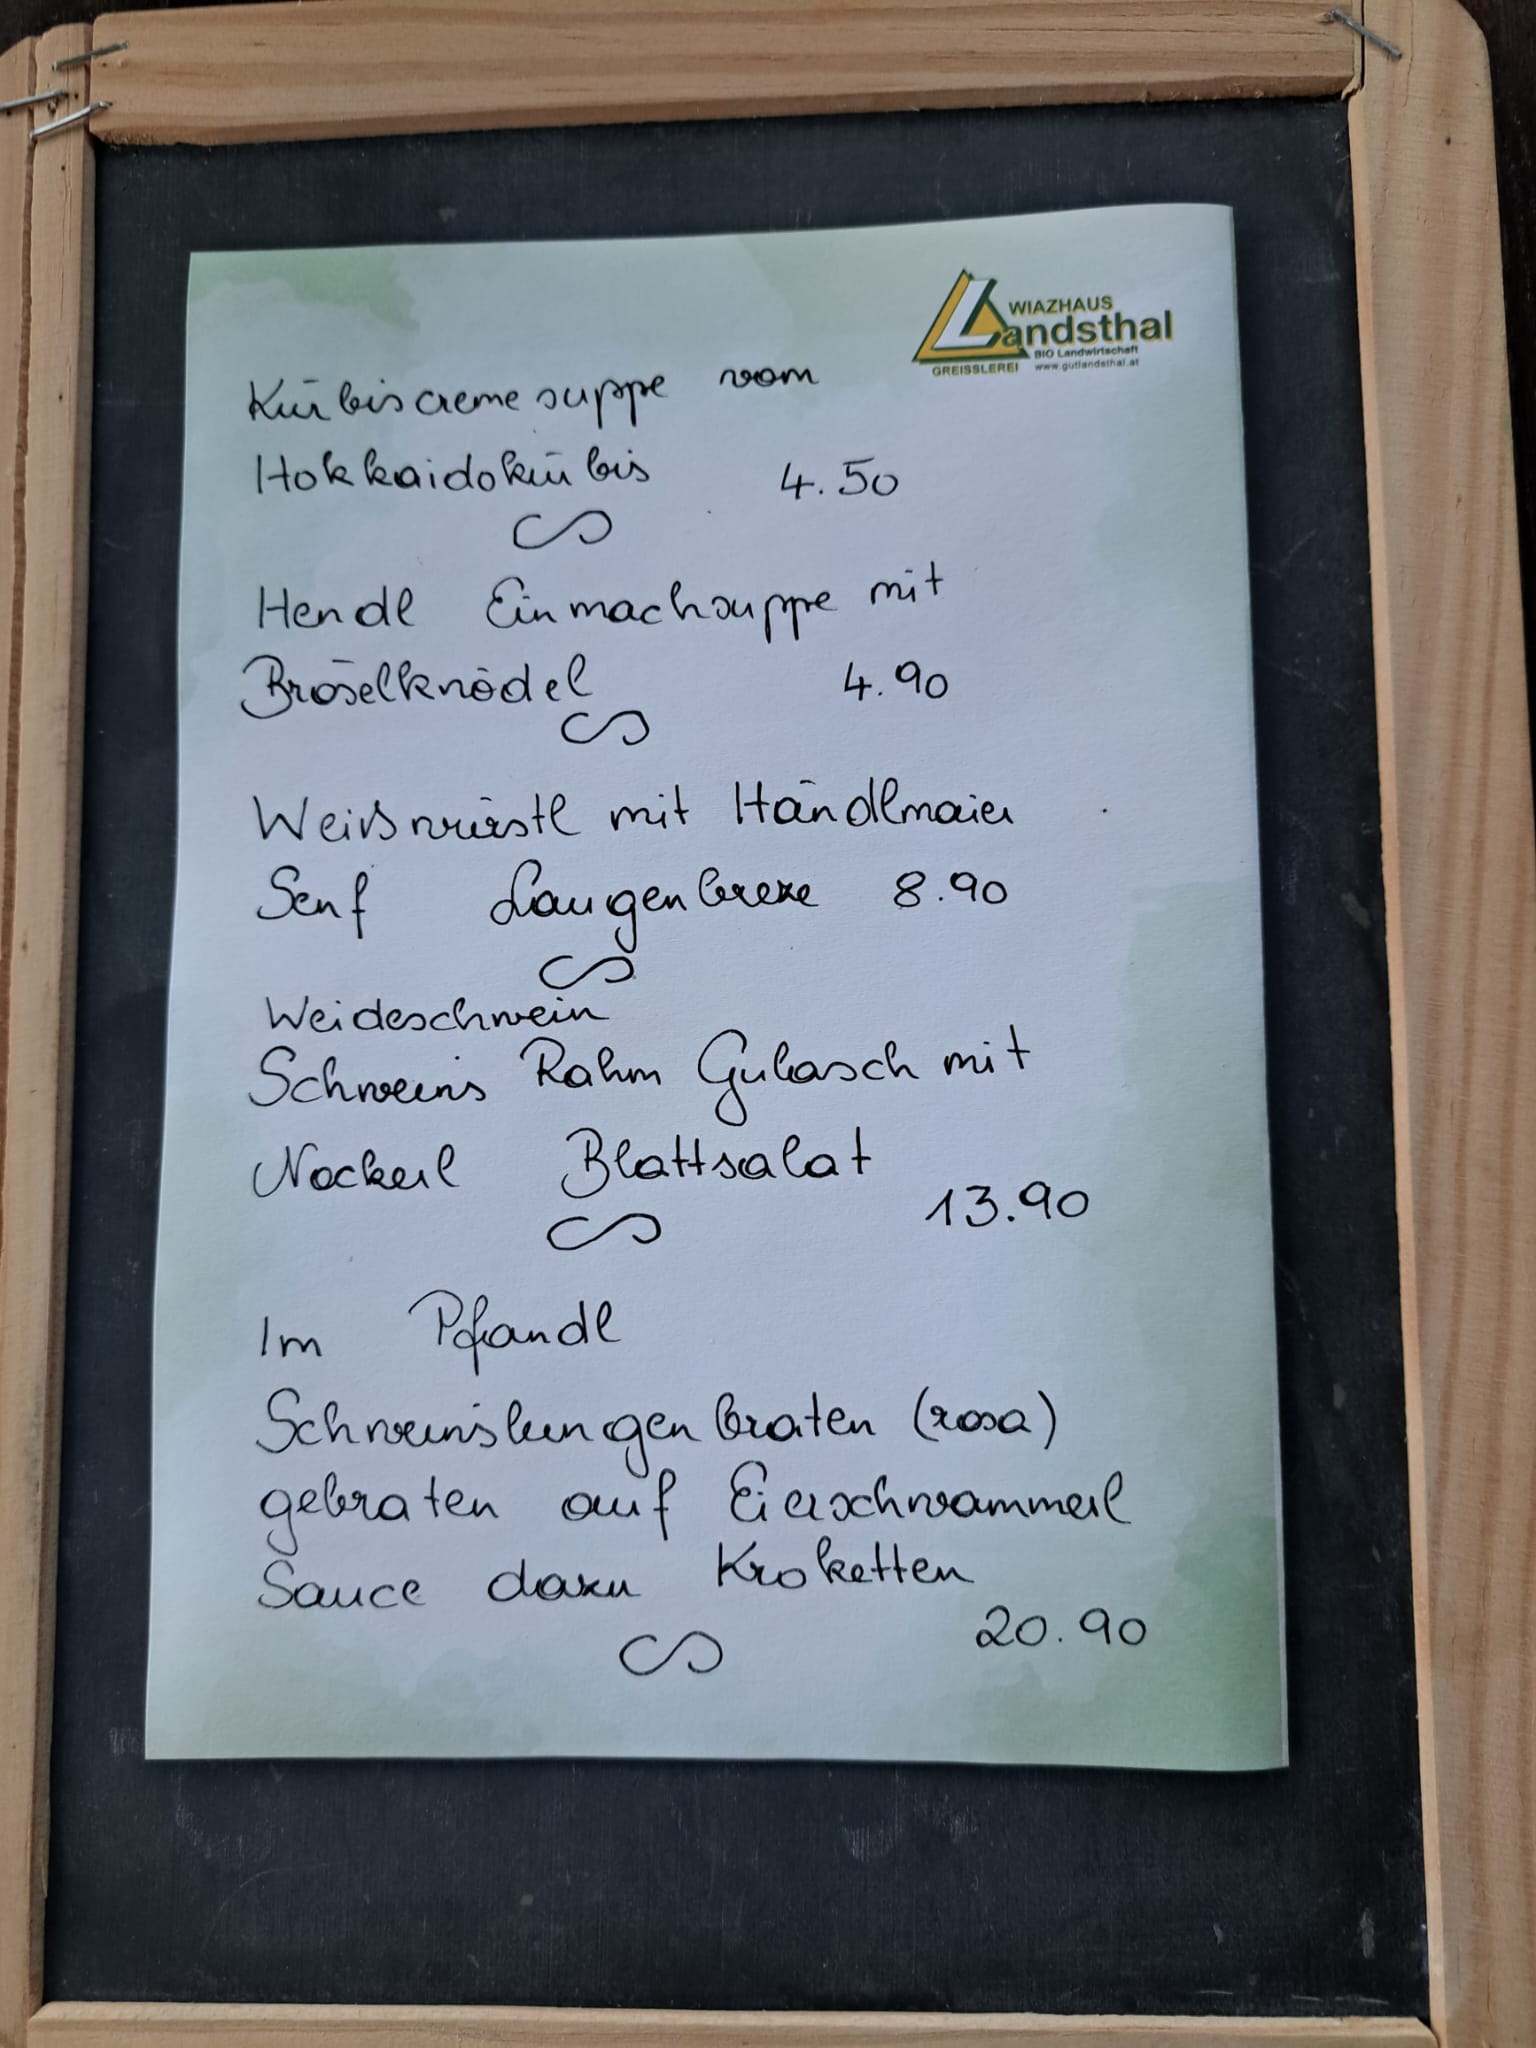 WIAZHAUS
Landsthal
BIO Landwirtschaft
GREISSLEREI www.gutlandsthal.at
Kürbiscremesuppe vom
Hokkaidokürbis 4.50
Hendl Einmachsuppe mit
Bröselknödel 4.90
Weißwürstl mit Händlmaier
Senf Laugenbreze 8.90
Weideschwein
Schweins Rahm Gulasch mit
Nockerl Blattsalat
13.90
Im Pfandl
Schweinslungenbraten (rosa)
gebraten auf Eierschwammerl
Sauce dazu Kroketten
20.90